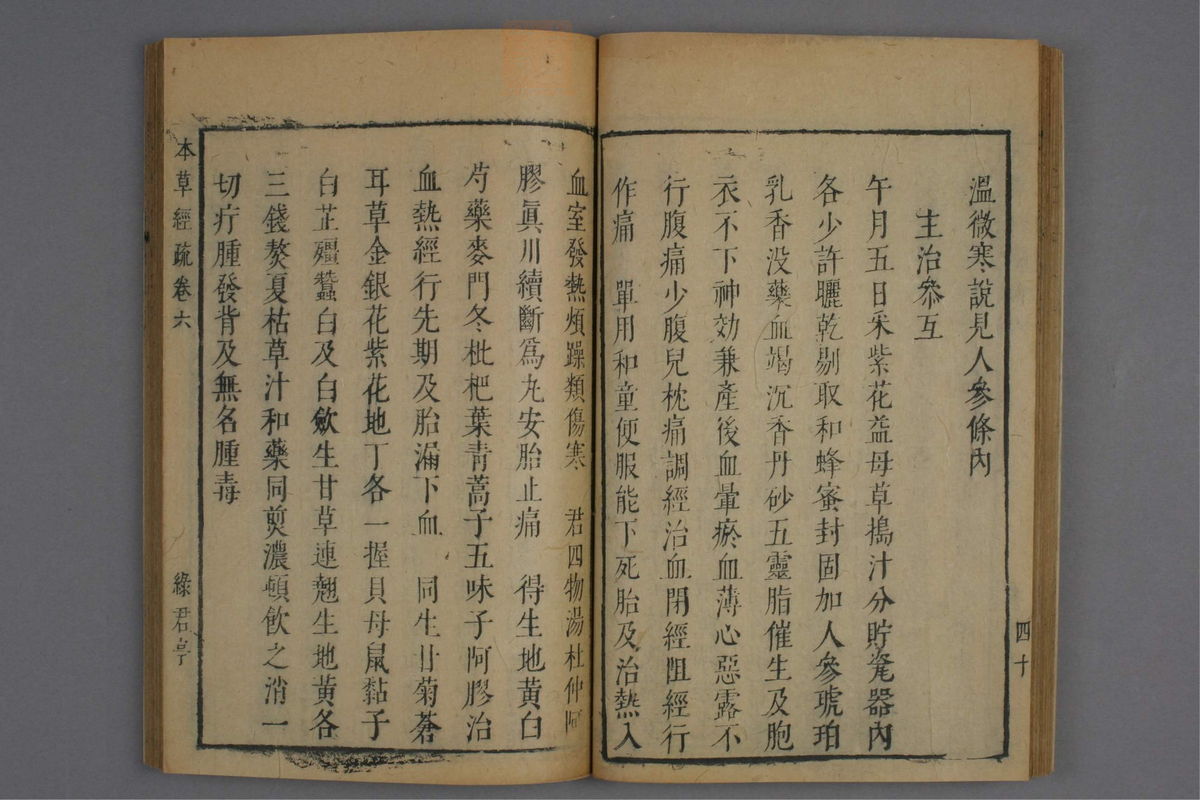 溫微寒說見人參條內
主治參互
午月五日采紫花益母草搗汁分貯甆器內
各少許曬乾剔取和蜂蜜封固加人參琥珀
乳香没藥血竭沉香丹砂五靈脂催生及胞
衣不下神効兼產後血暈瘀血薄心惡露不
行腹痛少腹兒枕痛調經治血閉經阻經行
作痛　單用和童便服能下死胎及治熱入
四十
血室發熱煩躁類傷寒　君四物湯杜仲阿
膠眞川續斷爲丸安胎止痛　得生地黃白
芍藥麥門冬枇杷葉青蒿子五味子阿膠治
血熱經行先期及胎漏下血　同生甘菊蒼
耳草金銀花紫花地丁各一握貝母鼠黏子
白芷殭蠶白及白歛生甘草連翹生地黃各
三錢熬夏枯草汁和藥同煎濃頓飲之消一
切疔腫發背及無名腫毒
本草經疏卷六　綠君亭